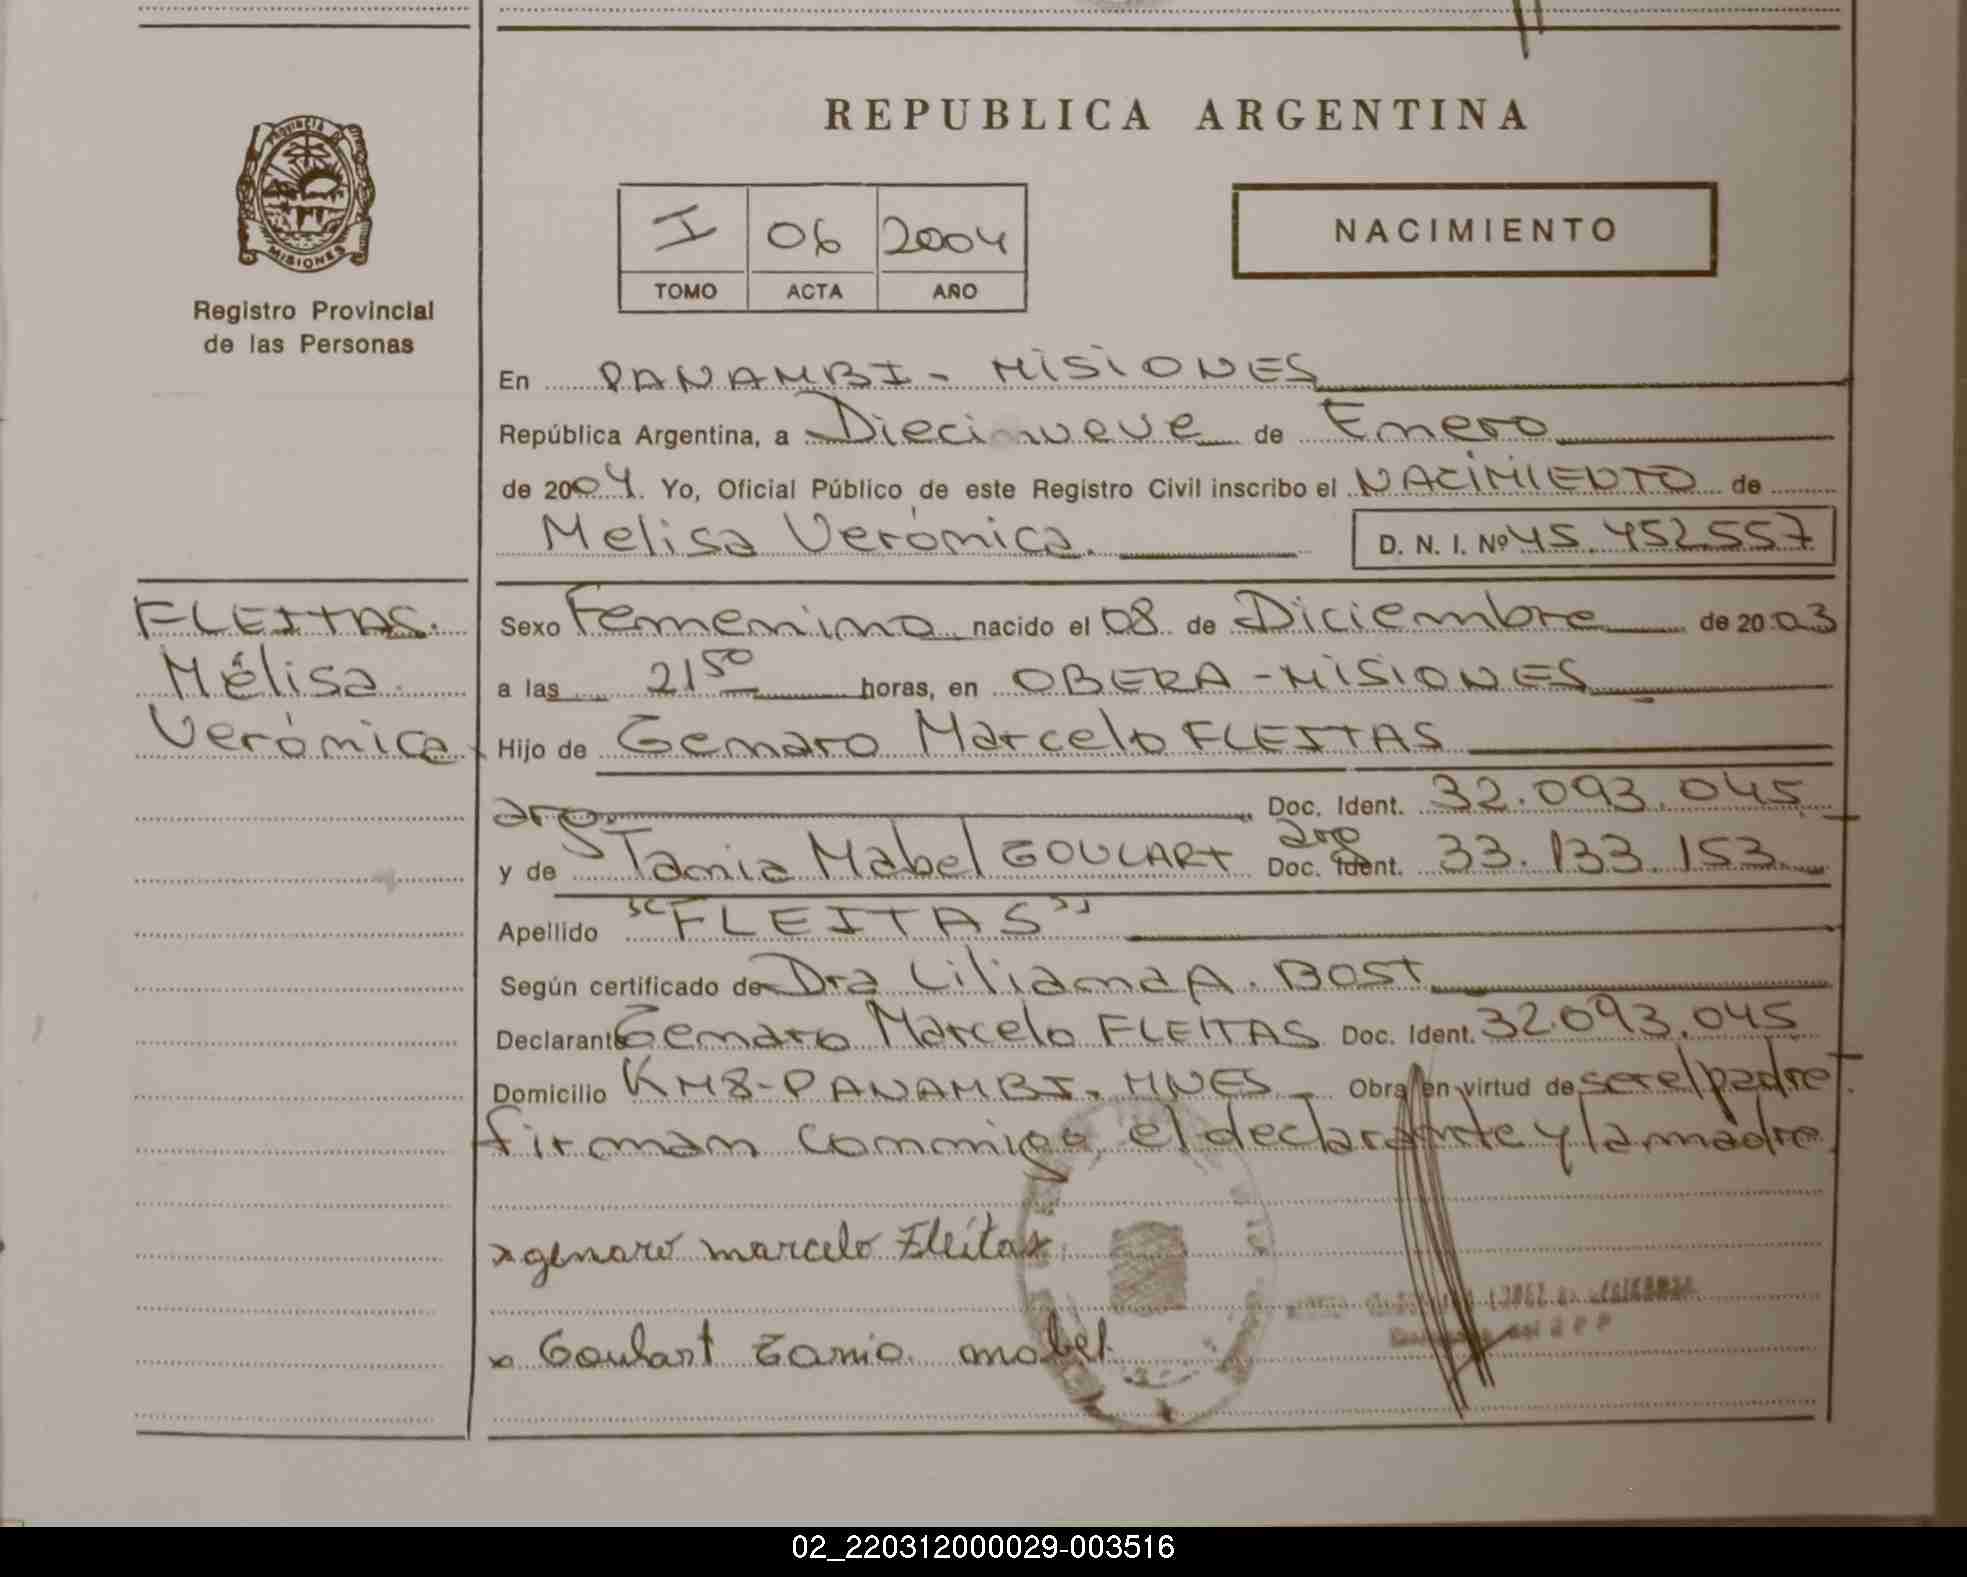 REPUBLICA ARGENTINA
PROVINCIA DE
MISIONES
Registro Provincial
de las Personas
I 06 2004
TOMO ACTA AÑO
NACIMIENTO
En PANAMBI - MISIONES
República Argentina, a Diecinueve de Enero
de 2004. Yo, Oficial Público de este Registro Civil inscribo el NACIMIENTO de
Melisa Verónica. D. N. I. Nº 45.452.557
FLEITAS.
Mélisa
Verónica
Sexo Femenino nacido el 08 de Diciembre de 2003
a las 21 50 horas, en OBERA - MISIONES
Hijo de Genaro Marcelo FLEITAS
arg. Doc. Ident. 32.093.045
y de Tania Mabel GOULART arg Doc. Ident. 33.133.153
Apellido "FLEITAS"
Según certificado de Dra Liliana A. BOST
Declarante Genaro Marcelo FLEITAS Doc. Ident. 32.093.045
Domicilio KM8-PANAMBI. MNES Obra en virtud de ser el padre.
firman conmigo el declarante y la madre.
x genaro marcelo Fleitas
x Goulart Tania mabel
02_220312000029-003516